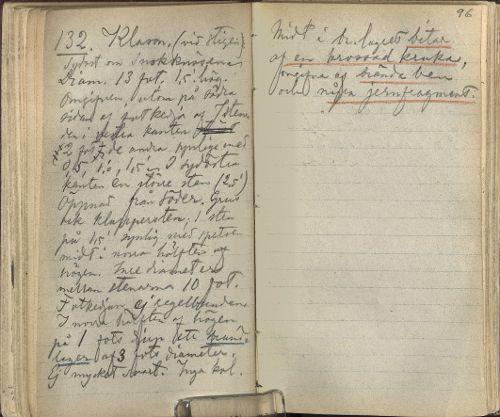 132. Klason. (vid stigen)
Sydost om Snokknösen
Diam. 13 fot. 1,5' hög.
Omgifven, utom på södra
sidan af fotkedja af stenar
den i vestra kanten
2 fot. de andra synlige med
1,5, 1,0, 1,5'. I sydöstra
kanten en större sten (2,5')
Öppnad från söder. Grus
och klappersten; 1 sten
på 1,5' synlig med spetsen
midt i norra hälften af
högen. Inre diametern
mellan stenarna 10 fot.
Fotkedjan ej regelbunden
I norra hälften af högen
på 1 fots djup ett brand
lager af 3 fots diameter.
Ej mycket svart. Inga kol.
96
Midt i br. lagret bitar
af en prosvad kruka,
omgifna af brända ben
och några jernfragment.